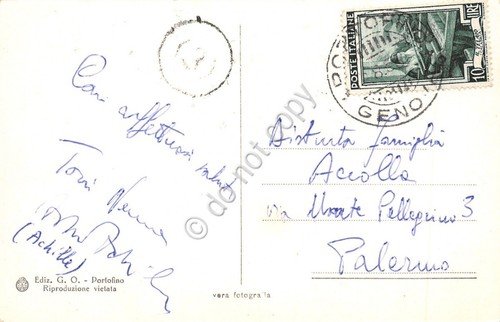 POSTE ITALIANE
LIRE 10
PORTOFINO
GENOVA
Con affettuosi saluti
(Achille)
Distinta famiglia
Accolla
via Monte Pellegrino 3
Palermo
Ediz. G. O. - Portofino
Riproduzione vietata
vera fotografia
© do not copy